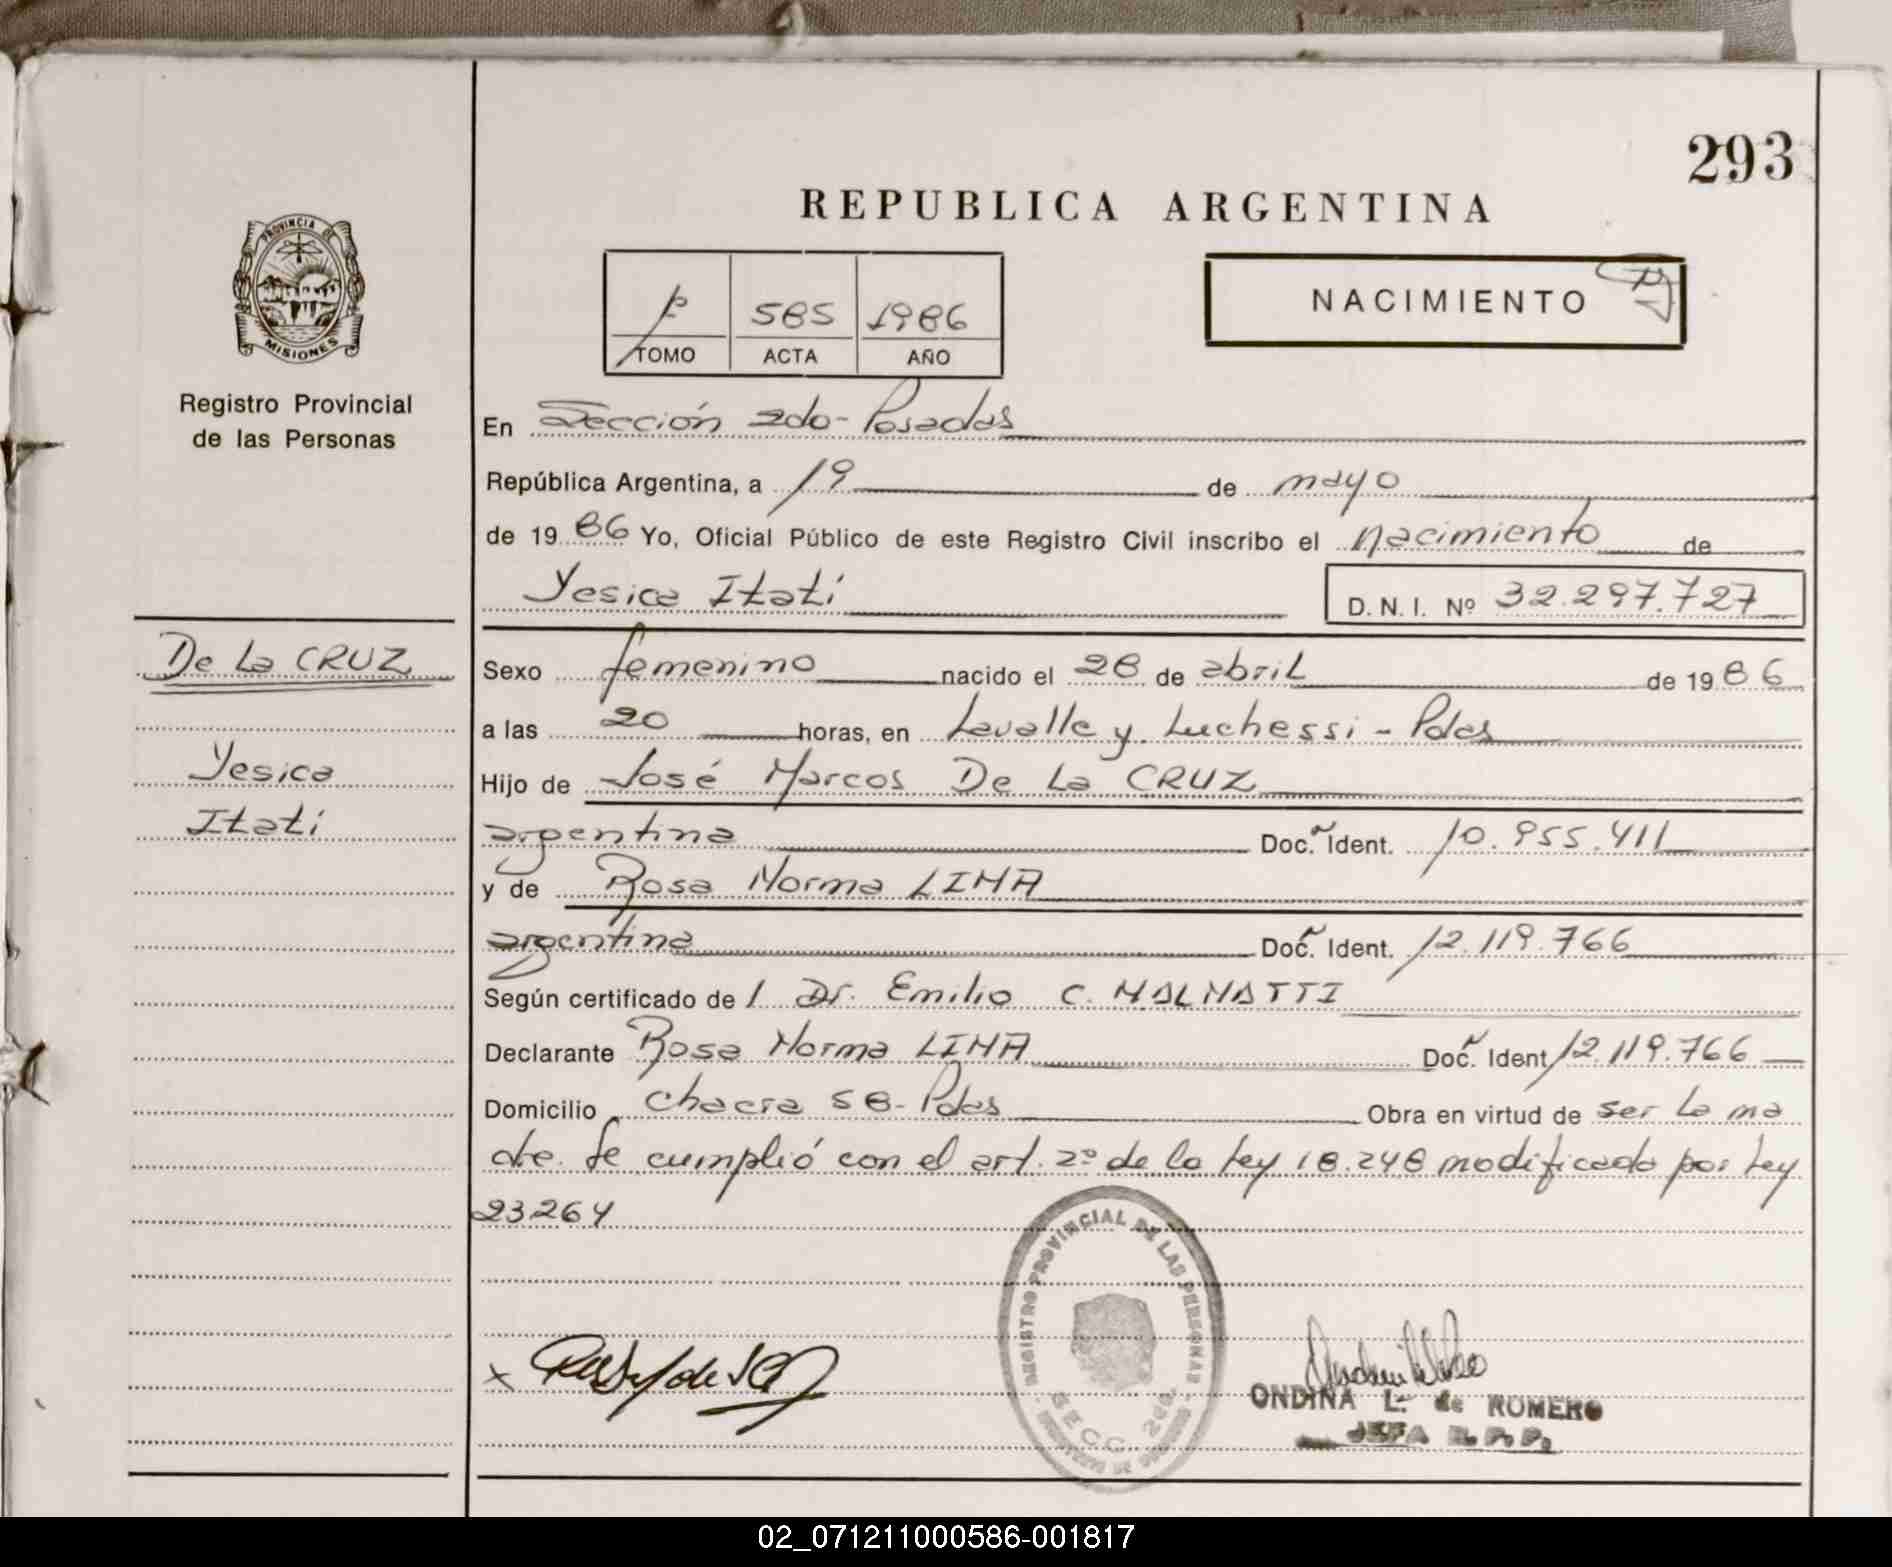 293
REPUBLICA ARGENTINA
PROVINCIA DE
MISIONES
Registro Provincial
de las Personas
585 1986
TOMO ACTA AÑO
NACIMIENTO
En Sección 2do - Posadas
República Argentina, a 19 de mayo
de 1986 Yo, Oficial Público de este Registro Civil inscribo el nacimiento de
Yesica Itatí D. N. I. Nº 32.297.727
De La CRUZ
Yesica
Itatí
Sexo femenino nacido el 28 de abril de 1986
a las 20 horas, en Lavalle y Luchessi - Pdas
Hijo de José Marcos De La CRUZ
argentina Doc. Ident. 10.955.411
y de Rosa Norma LIMA
argentina Doc. Ident. 12.119.766
Según certificado de / Dr. Emilio C. MALMATTI
Declarante Rosa Norma LIMA Doc. Ident 12.119.766
Domicilio Chacra 58 - Pdas Obra en virtud de ser la ma
dre. Se cumplió con el art. 2º de la Ley 18.248 modificada por Ley
23264
REGISTRO PROVINCIAL DE LAS PERSONAS
SECC. 2da.
ONDINA L. de ROMERO
JEFA R. P. P.
02_071211000586-001817